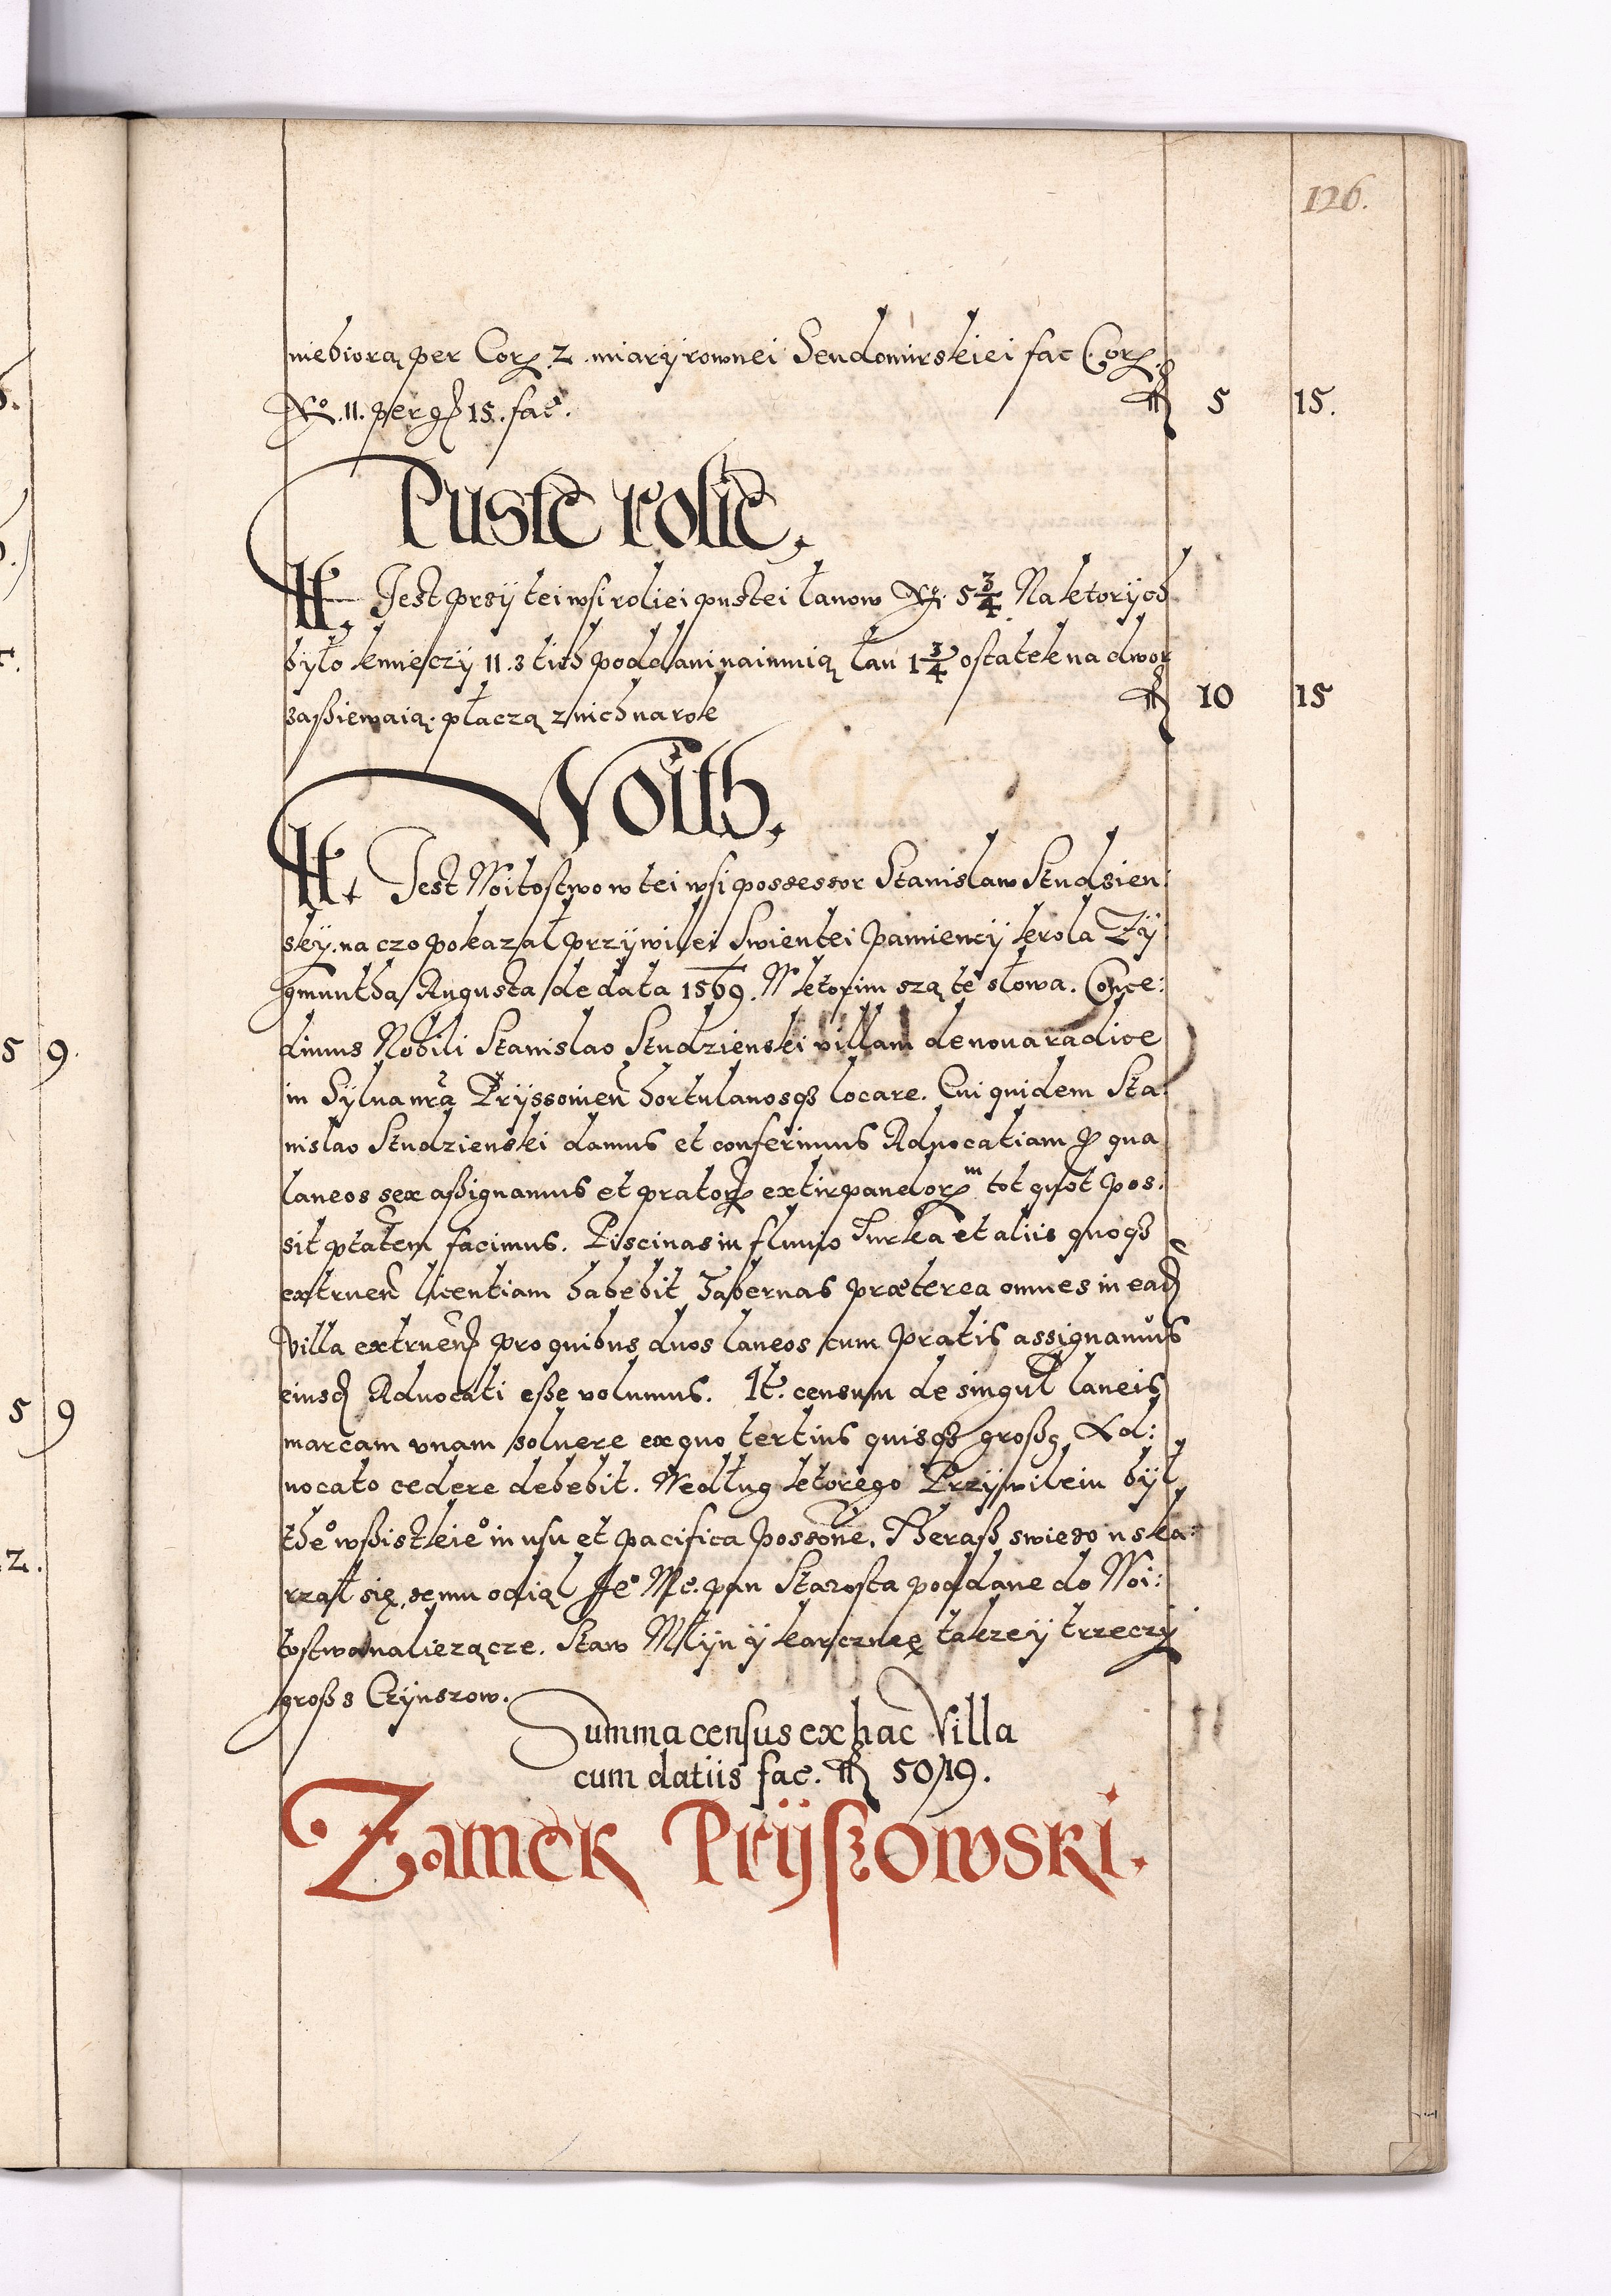 126.
niebiorą per Cor. 2 miary rownei Sendomirskiei fac Cor.
No. 11. per g 15. fac. fl 5 15.
Puste rolie.
It. Jest przy tei wsi roliei pustei łanow No. 5 3/4 Na ktorych
było kmieczy 11. z tich poddani naimuią łan 1 3/4 ostatek na dwor
zaßiewaią. płaczą z nich na rok fl 10 15
Woith.
It. Jest Woitostwo w tei wsi possessor Stanislaw Studzien:
sky. na czo pokazał przywilei Swientei Pamiency krola Zy
gmuntha Augusta de data 1569. W ktorim szą te słowa. Conce:
dimus Nobili Stanislao Studzienski villam de noua radice
in Sylua nra Pryssouien hortulanosq3 locare. Cui quidem Sta
nislao Studzienski damus et conferimus Aduocatiam p qua
laneos sex aßignamus et prator extirpandor m tot quot pos:
sit ptatem facimus. Piscinas in fluuio Turka et aliis quoq3
extruen licentiam habebit Tabernas præterea omnes in ead
villa extruen pro quibus duos laneos cum pratis assignamus
eiusd Aduocati eße volumus. It. censum de singul laneis
marcam vnam soluere ex quo tertius quisq3 großg Ad:
uocato cedere debebit. Według ktorego Przywileiu był
the° wßistkie° in usu et pacifica possone. Theraß swiezo uska:
rzał się, ze mu odiął Je° Mc. pan Starosta poddane do Woi:
tostwa naliezącze. Staw Młyn y karczmę takze y trzeczy
groß z Czynszow.
Summa census ex hac Villa
cum datiis fac. fl 50/19.
Zamek Pryszowski.
5 9.
5 9
2.